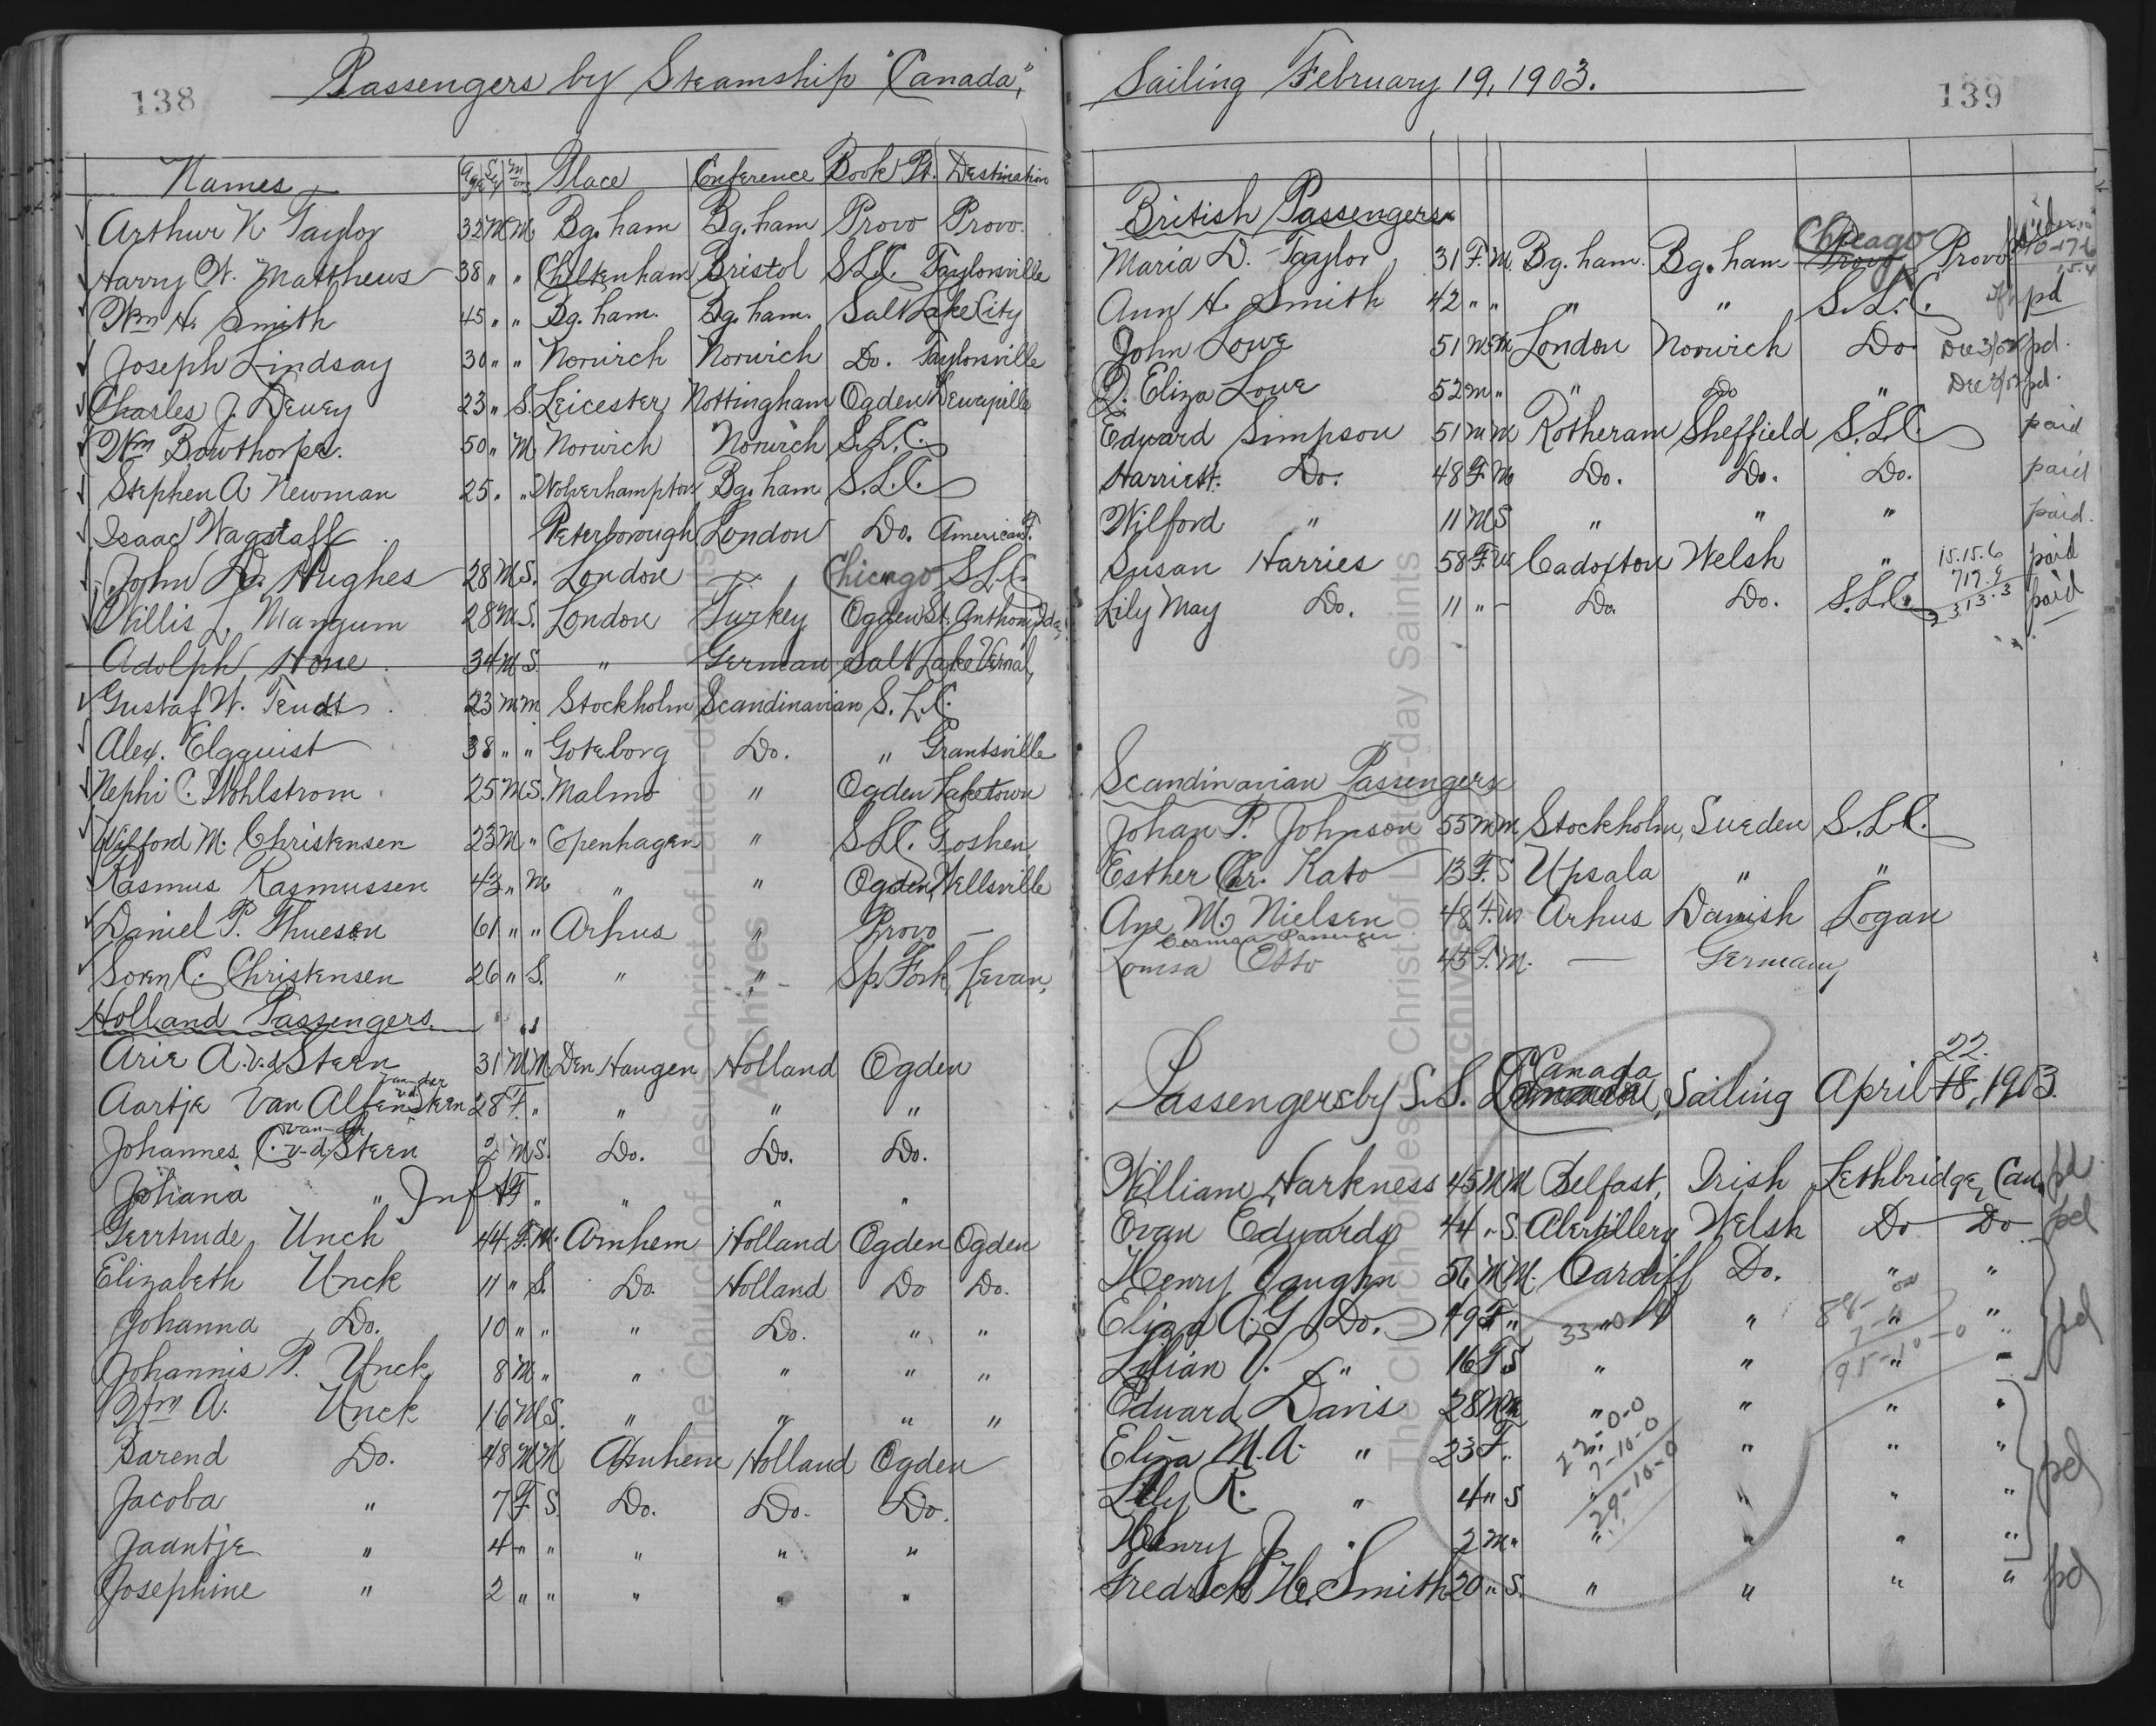 138
Passengers by Steamship "Canada",
Names Age Sex Place Conference Book Pt. Destination
Arthur N. Taylor 32 M M Bg. ham Bg. ham Provo Provo.
Harry W. Matthews 38 " " Cheltenham Bristol S.L.C. Taylorsville
Wm H. Smith 45 " " Bg. ham. Bg. ham. Salt Lake City
Joseph Lindsay 30 " " Norwich Norwich Do. Taylorsville
Charles J. Dewey 23 " S. Leicester Nottingham Ogden Deweyville
Wm Bowthorpe. 50 " M Norwich Norwich S.L.C.
Stephen A Newman 25. " " Wolverhampton Bg. ham S.L.C.
Isaac Wagstaff Peterborough London Do. American F.
John D. Hughes 28 M S. London Chicago S.L.C.
Willis L. Mangum 28 M S. London Turkey Ogden St. Anthony Ida.
Adolph Hone 34 M S. " German Salt Lake Vernal
Gustaf W. Teudt 23 m m Stockholm Scandinavian S.L.C.
Alex. Elgquist 38 " " Goteborg Do. " Grantsville
Nephi C. Wohlstrom 25 M S. Malmo " Ogden Laketown
Wilford M. Christensen 23 M " Copenhagen " S.L.C. Goshen,
Rasmus Rasmussen 43 " M " " Ogden, Wellsville
Daniel P. Thuesen 61 " " Arhus " Provo —
Soren C. Christensen 26 " S. " " Sp. Fork, Levan,
Holland Passengers
Arie A. v.d Steen 31 M M Den Haugen Holland Ogden
Aartje Van Alfen van der Steen 28 F. " " " "
Johannes C. van-der v-d Steen 2 M S. Do. Do. Do.
Johana " Inf F " " " "
Geertrude Unck 44 F. M. Arnhem Holland Ogden Ogden
Elizabeth Unck 11 " S. Do. Holland Do Do.
Johanna Do. 10 " " " Do. " "
Johannis P. Unck 8 M " " " " "
Wm A. Unck 16 M S. " " " "
Barend Do. 48 M M Arnhem Holland Ogden
Jacoba " 7 F S. Do. Do. Do.
Jaantje " 4 " " " " "
Josephine " 2 " " " " "
139
Sailing February 19, 1903.
British Passengers
Maria D. Taylor 31 F. M. Bg. ham. Bg. ham Provo Chicago Provo
Ann H. Smith 42 " " " " S.L.C. pd
John Lowe 51 M M London Norwich Do. pd.
D. Eliza Lowe 52 m " " Do " pd.
Edward Simpson 51 m m Rotheram Sheffield S.L.C. paid
Harriett Do. 48 F. M Do. Do. Do. paid
Wilford " 11 M S " " " paid.
Susan Harries 58 F. w Cadoxton Welsh " 15.15.6 paid
Lily May Do. 11 " - Do. Do. S.L.C. 23.13.3 paid
Scandinavian Passengers
Johan P. Johnson 55 m m Stockholm, Sweden S.L.C.
Esther Chr. Kato 13 F. S Upsala " "
Ane M. Nielsen 48 F. w Arhus Danish Logan
German Passenger
Louisa Otto 45 F. M. — Germany
Passengers by S.S. Canada, Sailing April 18, 22. 1903.
William Harkness 45 M M Belfast, Irish Lethbridge, Can. pd
Evan Edwards 44 " S. Abertillery Welsh Do Do pd
Henry Vaughn 56 M M. Cardiff Do. " "
Eliza A.G. Do. 49 F " " " " " pd
Lilian V. " 16 F S " " " "
Edward Davis 28 M M " " " "
Eliza M.A. " 23 F. " " " " " pd
Lily R. " 4 " S " " " "
Henry J. " 2 m " " " " "
Fredrick H. Smith 20 " S. " " " " pd
33-0
95-10-0
22-0-0
7-10-0
29-10-0
The Church of Jesus Christ of Latter-day Saints
Archives
The Church of Jesus Christ of Latter-day Saints
Archives